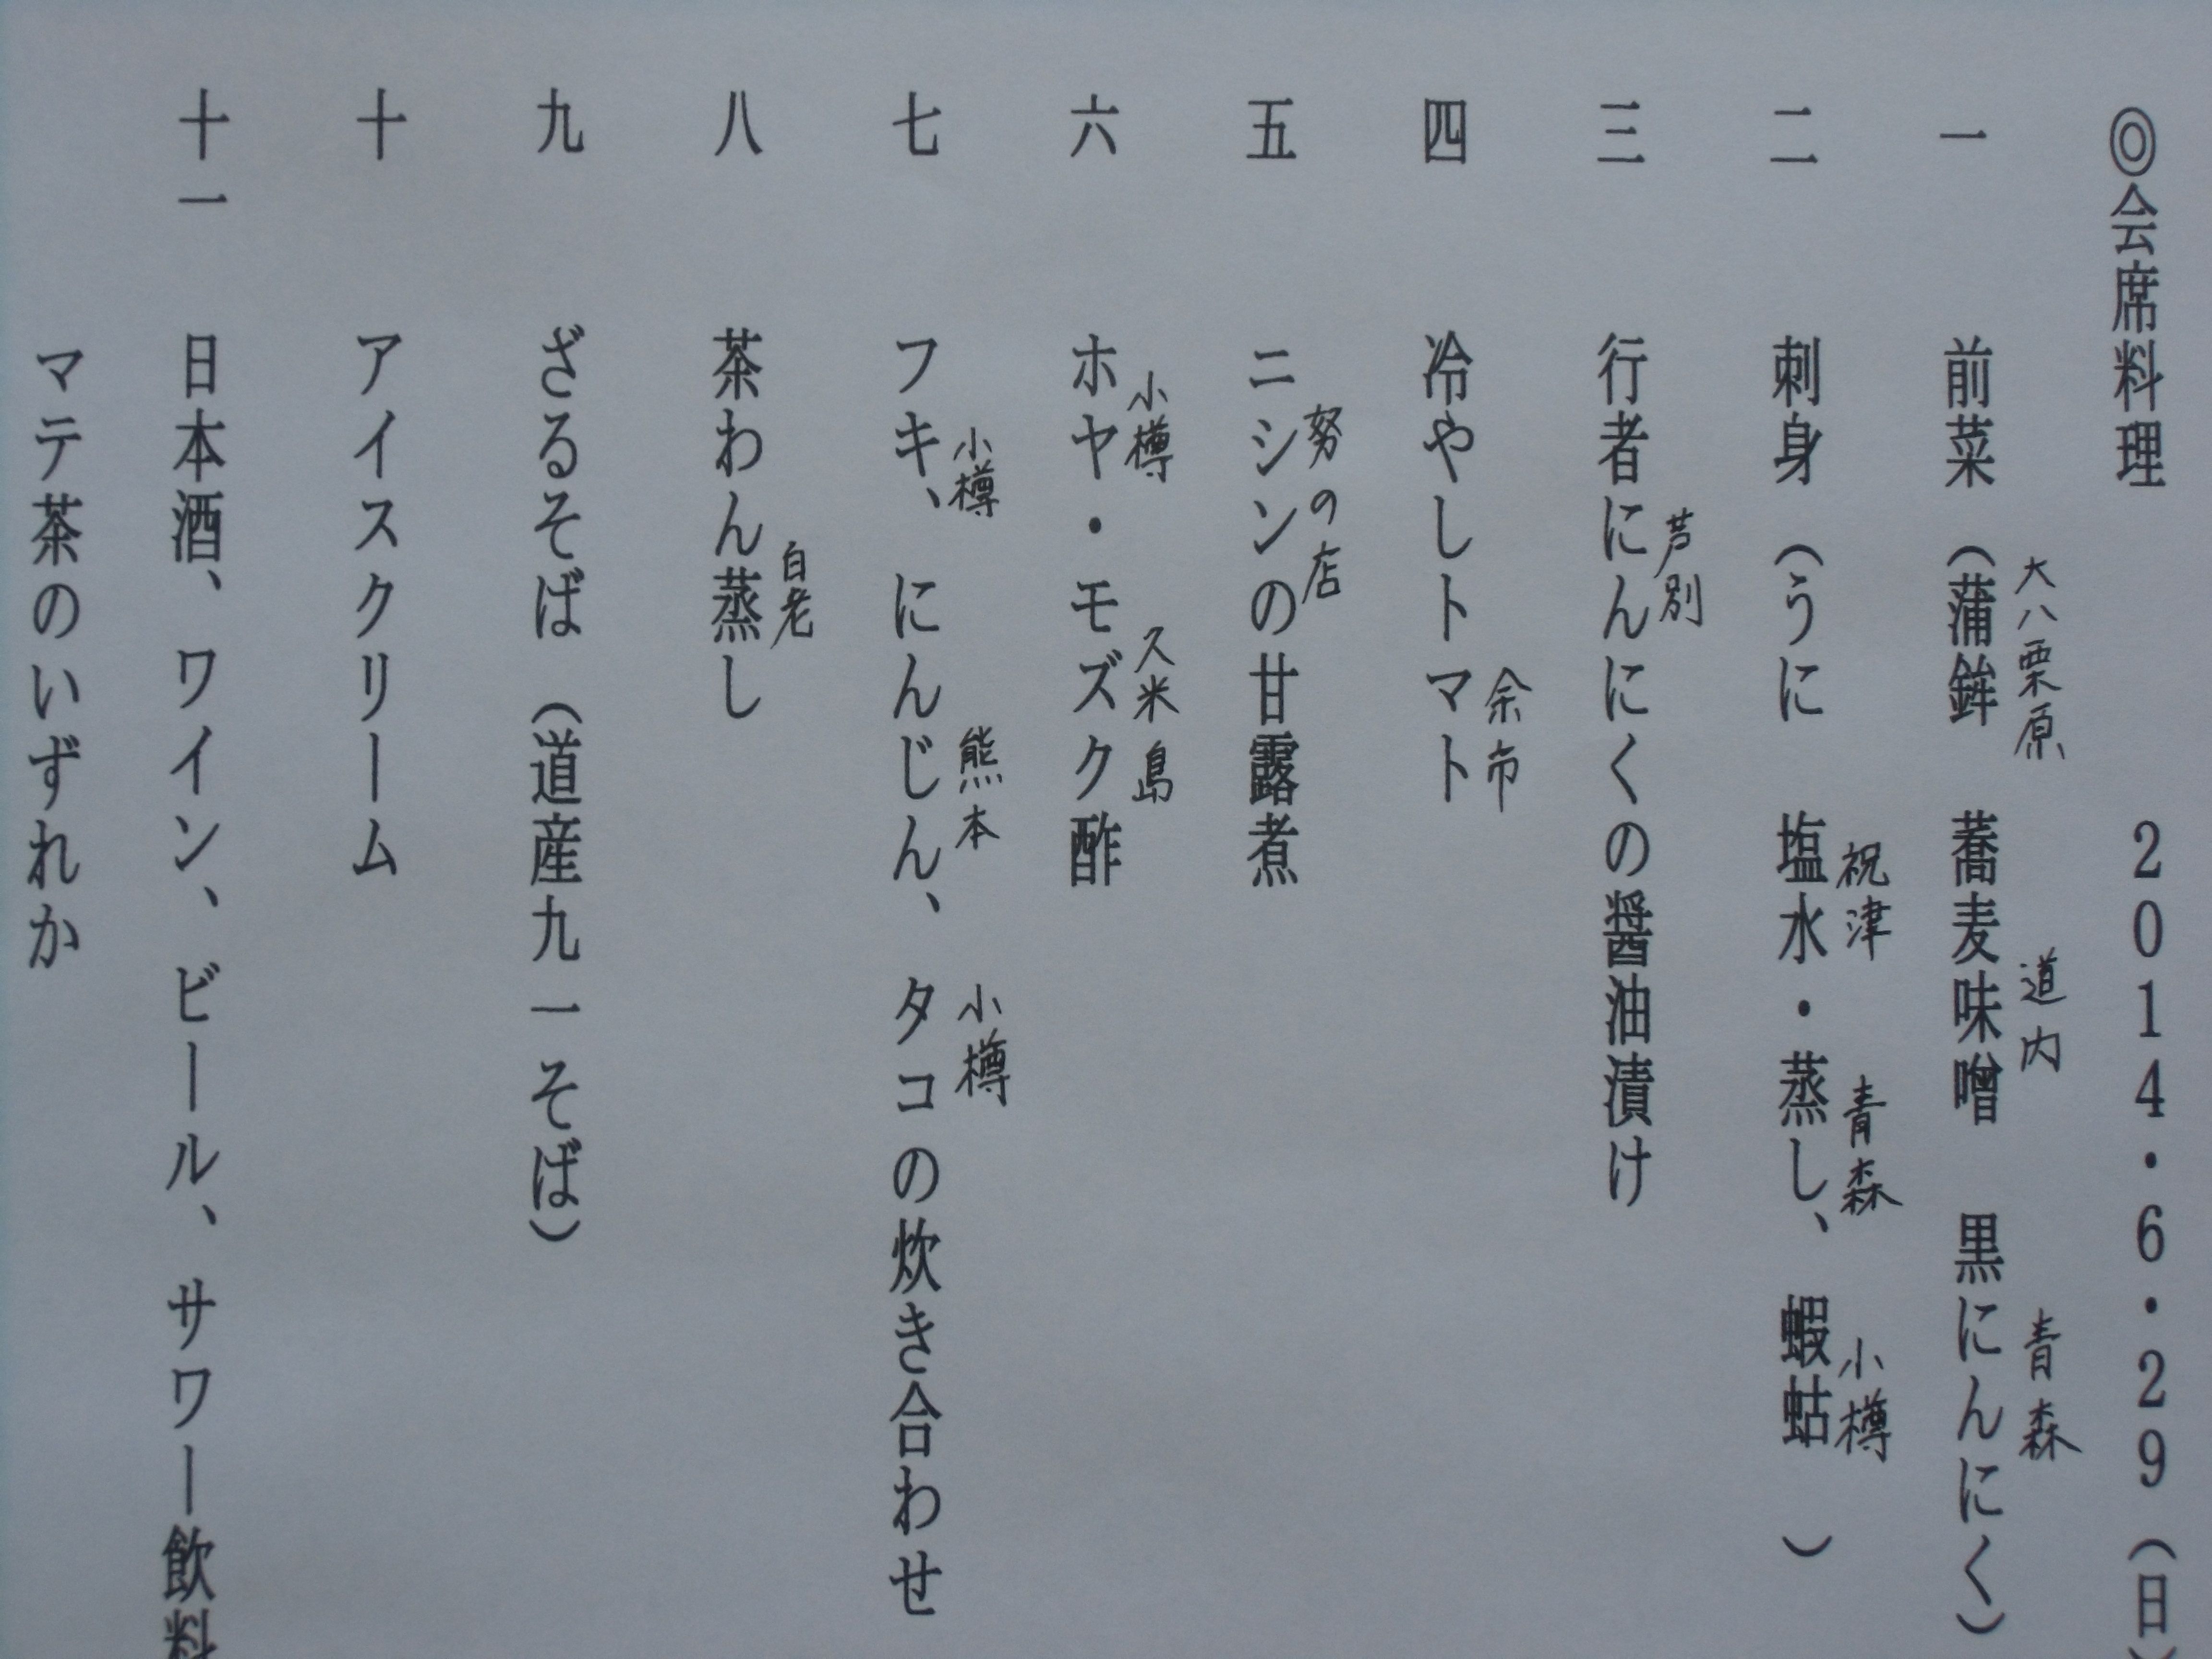 ◎会席料理 2014・6・29（日）
大八栗原 道内 青森
一 前菜（蒲鉾 蕎麦味噌 黒にんにく）
祝津 青森 小樽
二 刺身（うに 塩水・蒸し、蝦蛄 ）
芦別
三 行者にんにくの醤油漬け
余市
四 冷やしトマト
努の店
五 ニシンの甘露煮
小樽 久米島
六 ホヤ・モズク酢
小樽 熊本 小樽
七 フキ、にんじん、タコの炊き合わせ
白老
八 茶わん蒸し
九 ざるそば（道産九一そば）
十 アイスクリーム
十一 日本酒、ワイン、ビール、サワー飲料
マテ茶のいずれか